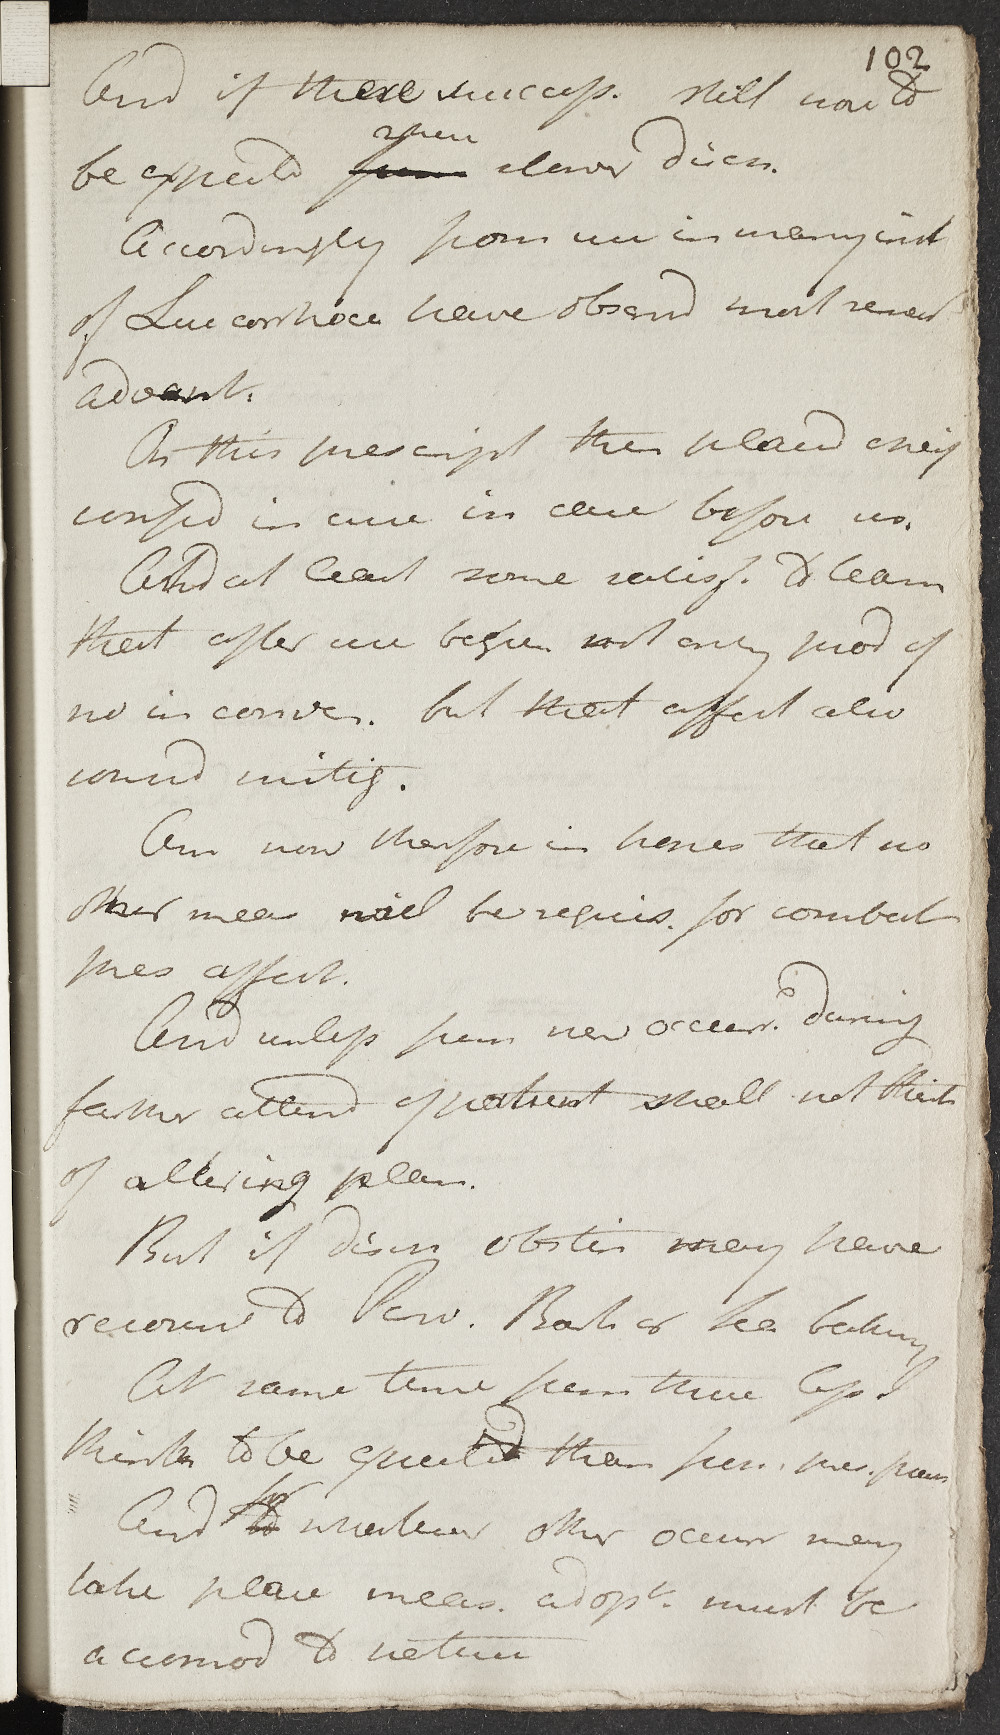 102
And if there success. still wou'd
be expected <s>from</s> when slower disch.
Accordingly from use in many inst
of Leucorrhoea have observd most remar
advant.
On this prescript then placed chiefly
confid in cure in case before us.
And at least some satisf. to learn
that after use begun not only prod of
no inconven. but that affect also
considd mitig.
Am now therefore in hopes that no
other meas will be requis. for combat
pres affect.
And unless from new occurr. during
farther attend of patient shall not think
of altering plan.
But if disch obstin may have
recourse to Peruv. Bark or Sea bathing
At same time from these less I
think to be expected than from pres. plan
And <s>to</s> for whatever other occurr may
take place meas. adopt. must be
accomod to nature